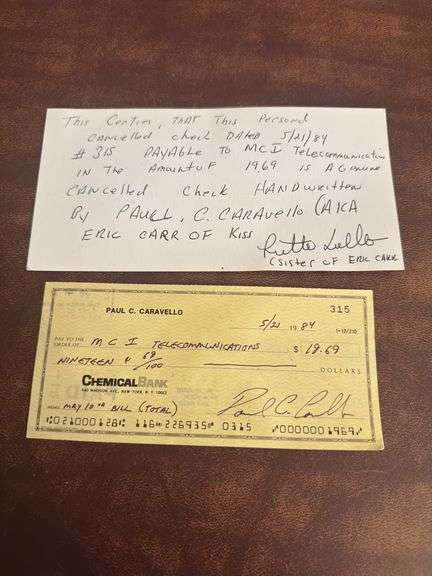 This Certifies, THAT This Personal
CANCelled check DATED 5/21/84
# 315 PAYABLE TO MCI Telecommunication
IN The Amount of 1969 is A Genuine
CANCelled Check HANDwritten
By PAUL, C. CARAvello (AKA
ERIC CARR OF KISS
(SISTER OF ERIC CARR
PAUL C. CARAVELLO
315
5/21 1984
1-12/210
PAY TO THE ORDER OF MCI TELECOMMUNICATIONS $ 19.69
NINETEEN & 69/100 DOLLARS
CHEMICALBANK
NEW YORK, N.Y.
MEMO MAY 10TH BILL (TOTAL) Paul C. Caravello
021000128 116 226935 0315 0000001969